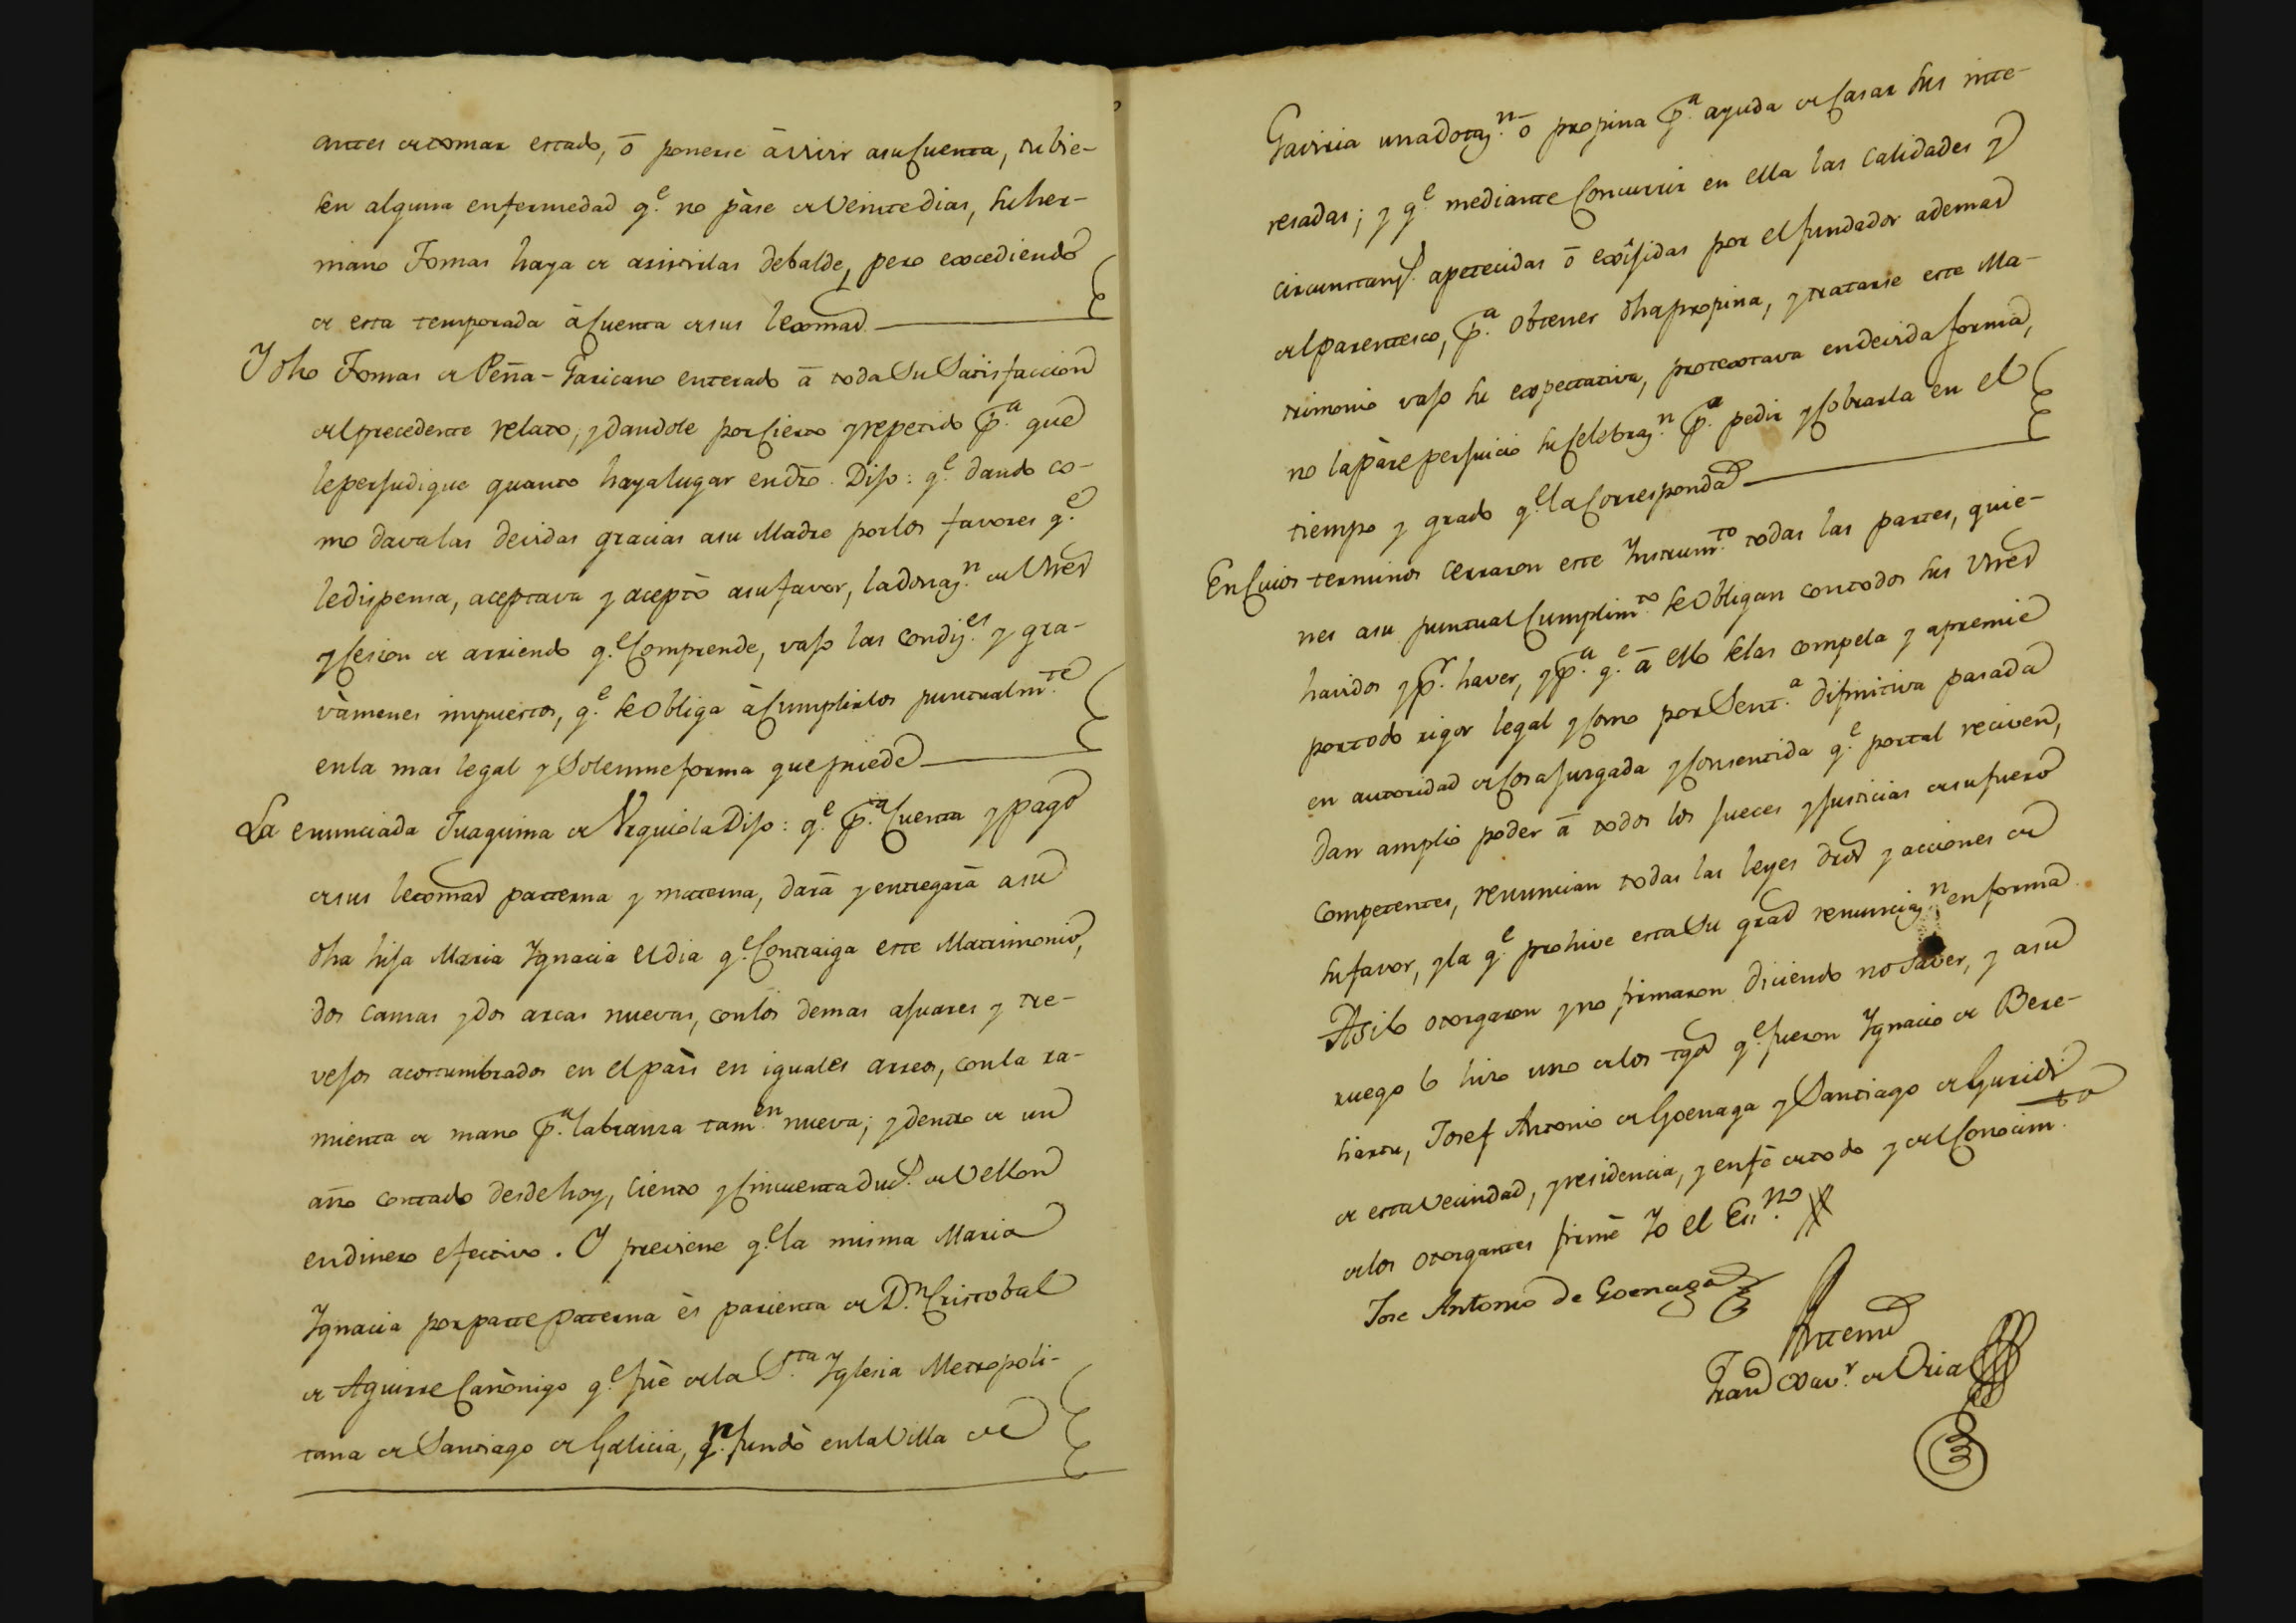 antes de tomar estado, ō ponerse ā vivir asu Cuenta, tubie-
sen alguna enfermedad q.e no pàse de Veinte dias, su her-
mano Tomas haya de asistirlas debalde, pero excediendo
de esta temporada à Cuenta de sus lexmas
Y dho Tomas de Peña-Garicano enterado ā toda Su Satisfaccion
del precedente relato, y dandole por Cierto y repetido p.a que
le perjudique quanto haya lugar en dro. Dijo: q.e dando co-
mo dava las devidas gracias asu Madre por los favores q.e
le dispensa, aceptava y aceptò asu favor, la donaz.n de Vnes
y Cesion de arriendo q.e Comprende, vajo las condiz.es y gra-
vàmenes impuestos, q.e se Obliga à Cumplirlos puntualm.te
en la mas legal y Solemne forma que puede
La enunciada Juaquina de Urquiola Dijo: q.e p.a Cuenta y pago
de sus lexmas patterna y materna, darà y entregarà asu
dha hija Maria Ygnacia el dia q.e Contraiga este Matrimonio,
dos camas y dos arcas nuevas, con los demas ajuares y tre-
vejos acostumbrados en el pàis en iguales arreos, con la ra-
mienta de mano p.a labranza tam.en nueva; y dentro de un
año contado desde hoy, Ciento y Cincuenta duc.s de Vellon
en dinero efectivo. Y previene q.e la misma Maria
Ygnacia por parte Paterna ès parienta de D.n Cristobal
de Aguirre Canònigo q.e fuè de la S.ta Yglesia Metropoli-
tana de Santiago de Galicia, q.n fundò en la Villa de
Gaviria una dotaz.n ō propina p.a ayuda de Casar sus inte-
resadas; y q.e mediante Concurrir en ella las Calidades y
circunstanz.s apetecidas ō exîjidas por el fundador ademas
del parentesco, p.a Obtener dha propina, y tratarse este Ma-
trimonio vajo su expectativa, protextava en devida forma,
no la pàre perjuicio su Celebraz.n p.a pedir y Cobrarla en el
tiempo y grado q.e la Corresponda
En Cuios terminos cerraron este Ynstrum.to todas las partes, quie-
nes asu puntual Cumplim.to se Obligan con todos sus Vnes
havidos y p.r haver, y p.a q.e ā ello se las compela y apremie
por todo rigor legal y Como por Sent.a difinitiva pasada
en autoridad de Cosa juzgada y Consentida q.e por tal reciven,
dan amplio poder ā todos los jueces y justicias de su fuero
Competentes, renuncian todas las leyes dros y acciones de
su favor, y la q.e prohive esta Su gral renunciaz.n en forma
Asi lo otorgaron y no firmaron diciendo no saver, y asu
ruego lo hizo uno de los tgos q.e fueron Ygnacio de Bere-
hiartu, Josef Antonio de Goenaga y Santiago de Guridi
de esta Vecindad, y residencia, y en fè de todo y del Conocim.to
de los otorgantes firmè Yo el Ess.no
Jose Antonio de Goenaga
Antemi
Fran.co Xav.r de Oria